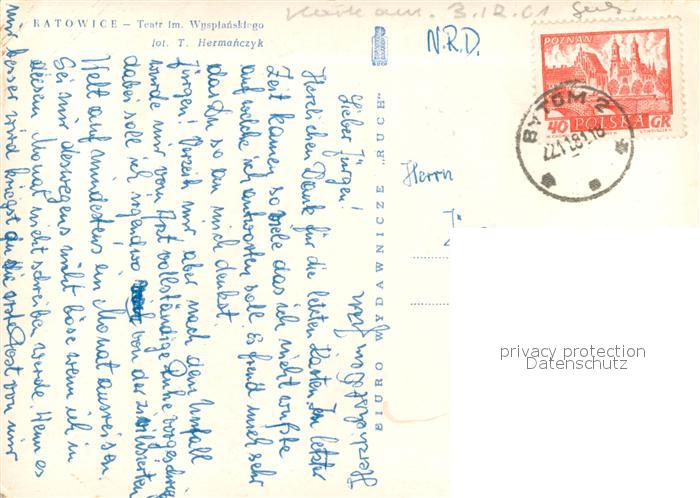 KATOWICE — Teatr im. Wyspiańskiego
fot. T. Hermańczyk
Karte am 3.12.61
N.R.D.
POZNAŃ
40 POLSKA GR
BYTOM 2
BIURO WYDAWNICZE "RUCH"
Herrn
Lieber Jürgen!
Herzlichen Dank für die letzten Karten. In letzter
Zeit kamen so viele das ich nicht wußte
auf welche ich antworten soll. Es freut mich sehr
das Du so an mich denkst.
Jürgen! Verzeih mir aber nach dem Unfall
wurde mir vom Arzt vollständige Ruhe vorgeschrieb
dabei soll ich irgendwo von der zivilisierten
Welt auf mindestens ein Monat ausreisen.
Sei mir deswegens nicht böse wenn ich in
diesem Monat nicht schreiben werde. Wenn es
mir besser wird kriegst du die erste Post von mir
Herzlichst
privacy protection
Datenschutz